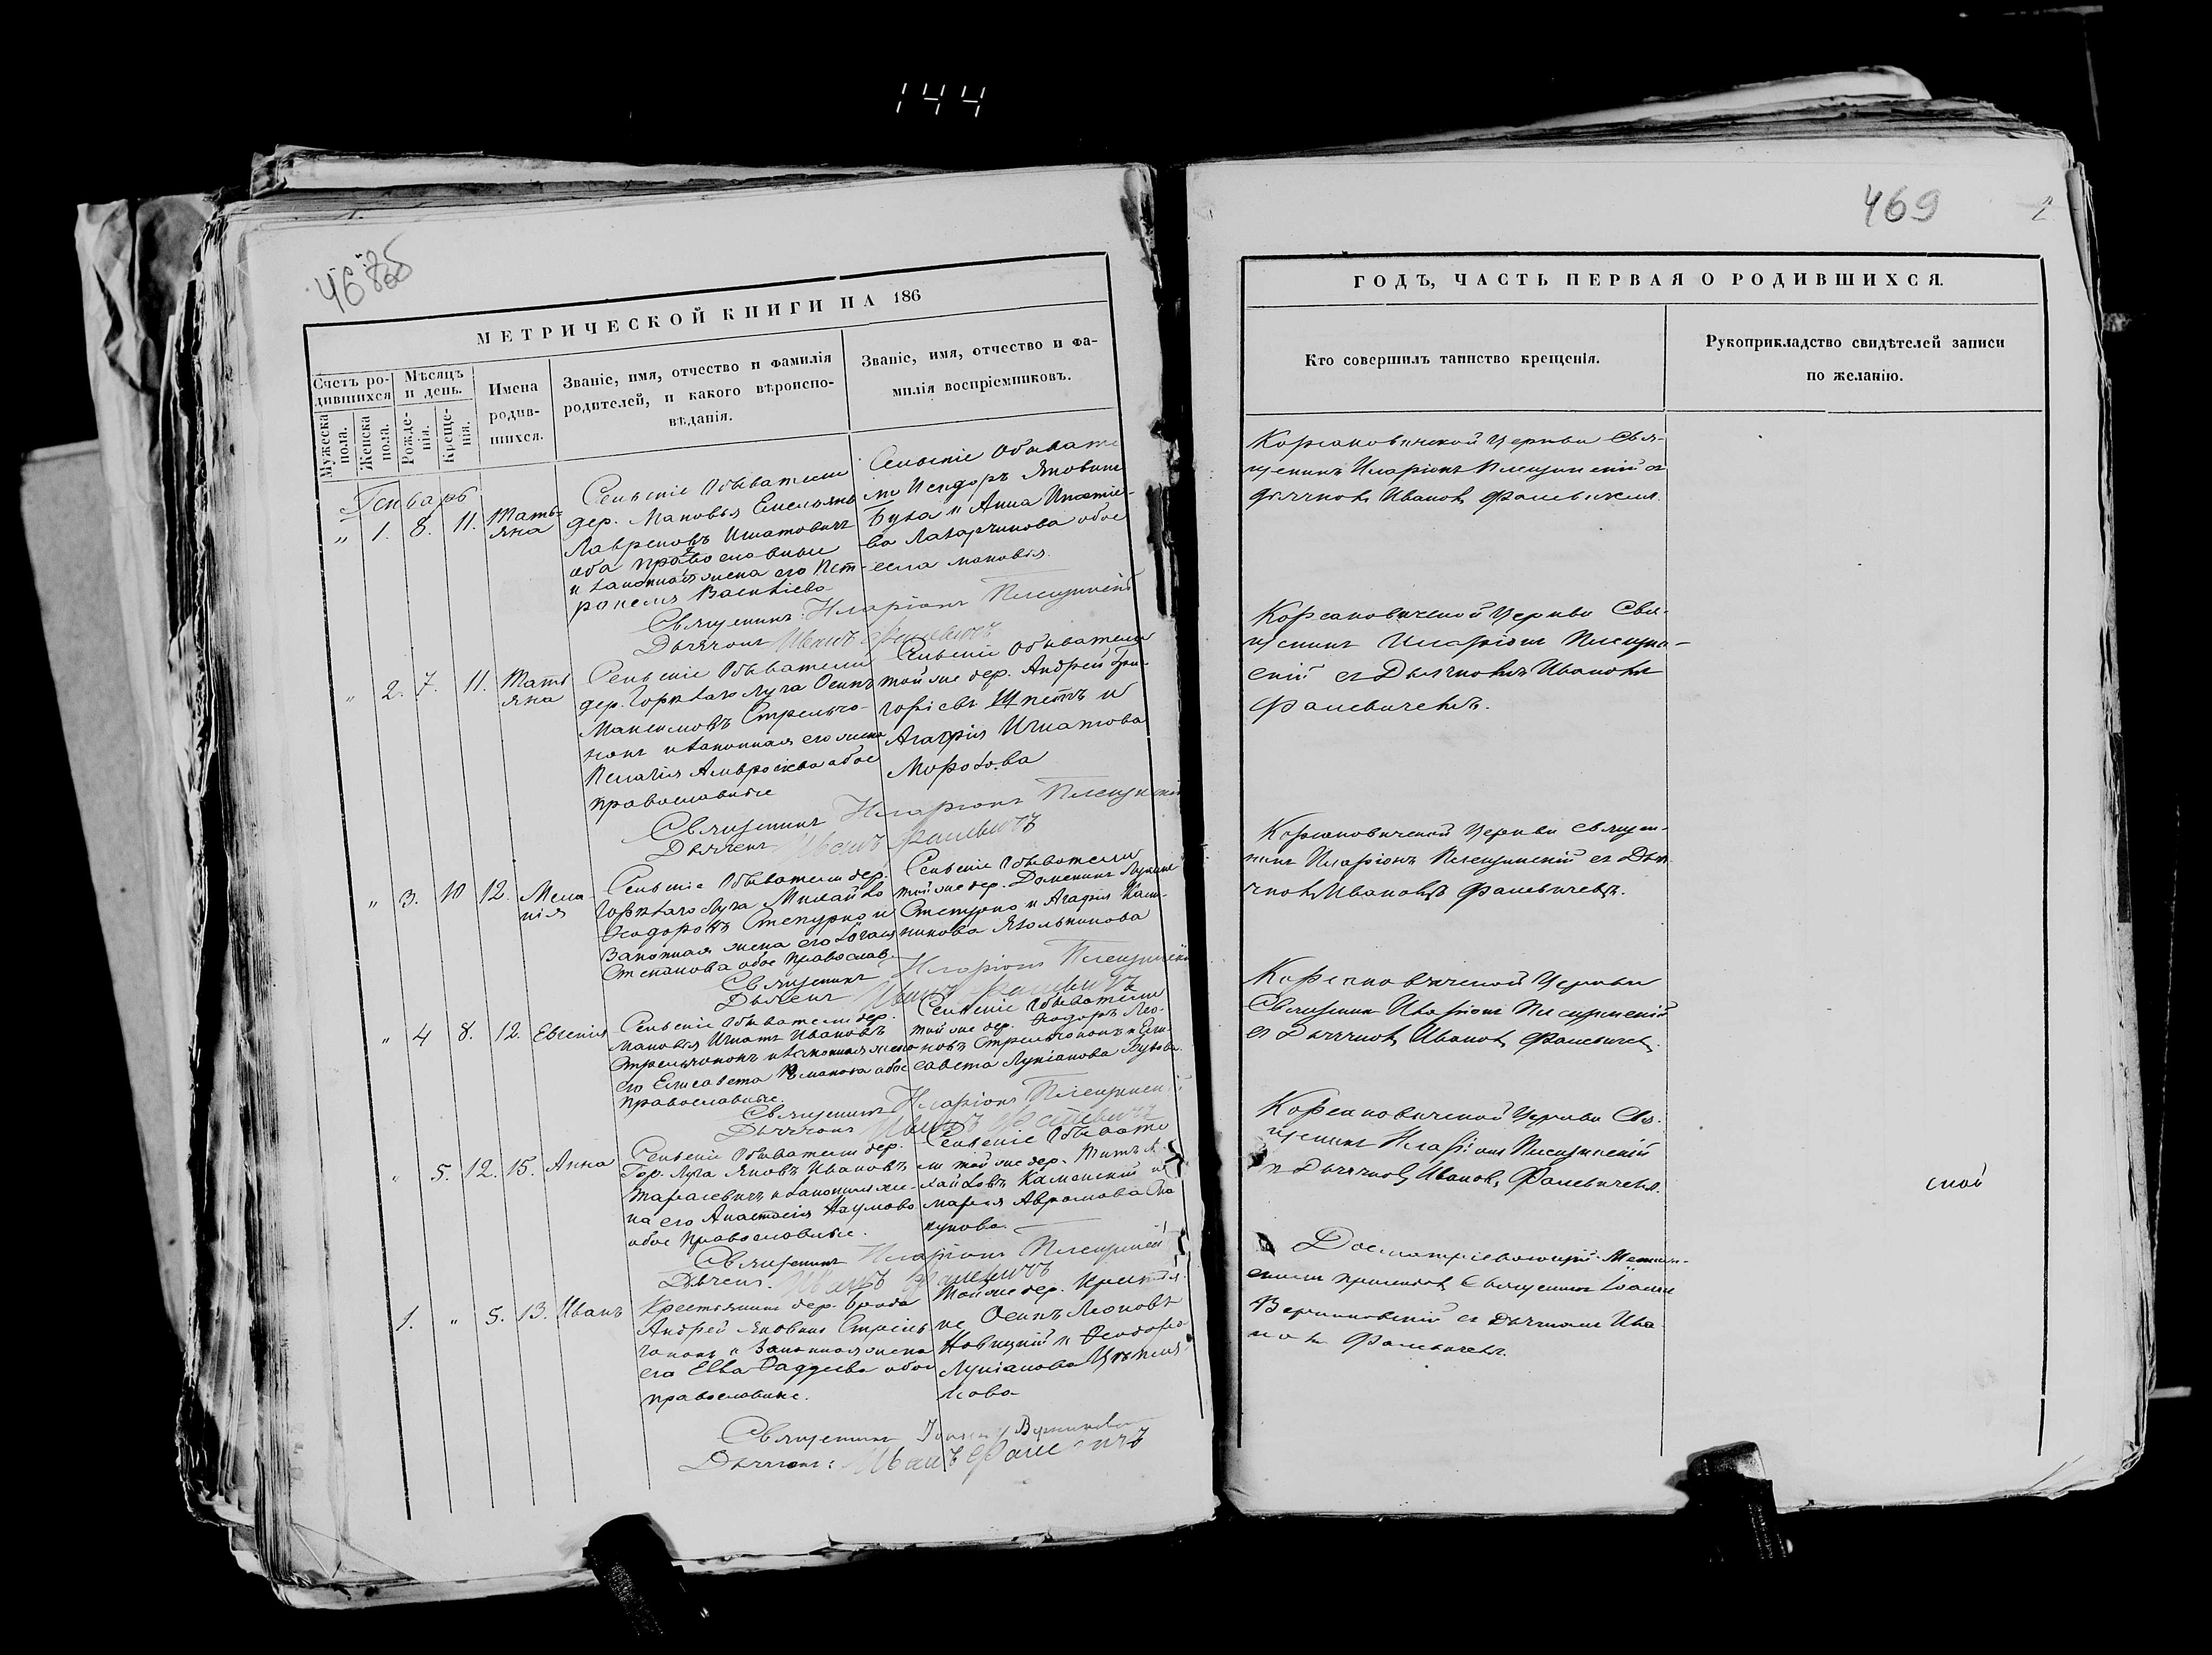 144
468об
МЕТРИЧЕСКОЙ КНИГИ НА 186
Счетъ ро-
дившихся
Мужеска
пола.
Женска
пола.
Мѣсяцъ
и день.
Рожде-
нія.
Креще-
нія.
Имена
родив-
шихся.
Званіе, имя, отчество и фамилія
родителей, и какого вѣроиспо-
вѣданія.
Званіе, имя, отчество и фа-
милія воспріемниковъ.
Генварь
" 1. 8. 11. Тать-
яна
Сельскіе Обыватели
дер. Маковья Емельянъ
Лавреновъ Игнатовичъ
оба православные
и законная жена его Пет-
ронеля Васильева
Сельскіе Обывате
ли Исидоръ Яковинъ
Бука и Анна Игнатіе-
ва Захарчикова обое
села маковья.
Священникъ Иларіонъ Плещинскій
Дьячокъ Иванъ Фалевичъ
" 2. 7. 11. Тать
яна
Сельскіе Обыватели
дер. Горѣваго Луга Осипъ
Максимовъ Стрельчо-
нокъ и законная его жена
Пелагія Амвросіева обое
православные
Сельскіе Обыватели
той же дер. Андрей Гри-
горіевъ
Агафія Игнатова
Морозова
Священникъ Иларіонъ Плещинскій
Дьячекъ Иванъ Фалевичъ
" 3. 10 12. Мела-
нія
Сельскіе Обыватели дер.
Горѣваго Луга Михайло
Ѳеодоровъ Степурко и
Законная жена его
Степанова обое православ.
Сельскіе Обыватели
той же дер. Доменикъ Лукинъ
Степурко и Агафія
Священникъ Иларіонъ Плещинскій
Дьячекъ Иванъ Фалевичъ
" 4 8. 12. Евгенія
Сельскіе Обыватели дер.
Маковья Игнатъ Ивановъ
Стрельчонокъ и законная жена
его Елисавета Романова обое
православные.
Сельскіе Обыватели
той же дер. Ѳеодоръ Лео-
новъ Стрельчонокъ и Ели-
савета Лукіанова Букова
Священникъ Иларіонъ Плещинскій
Дьячокъ Иванъ Фалевичъ
" 5. 12. 15. Анна
Сельскіе Обыватели дер.
Гор. Луга Яковъ Ивановъ
Тарасевичъ и законная же-
на его Анастасія Наумова
обое Православные.
Сельскіе Обывате
ли той же дер. Титъ
Каменскій и
Марія Аврамова
Священникъ Иларіонъ Плещинскій
Дьячекъ. Иванъ Фалевичъ
1. " 5. 13. Иванъ
Крестьянинъ дер. Броди
Андрей Яковинъ Стрель
чонокъ и Законная жена
его Евва Фаддеева обое
православные.
Той же дер. Крестья
не Осипъ Леоновъ
Новицкій и Ѳеодора
Лукіанова
Священникъ
Дьячокъ: Иванъ Фалевичъ
469
2
ГОДЪ, ЧАСТЬ ПЕРВАЯ О РОДИВШИХСЯ.
Кто совершилъ таинство крещенія.
Рукоприкладство свидѣтелей записи
по желанію.
Корсаковичской Церкви Свя-
щенникъ Иларіонъ Плещинскій съ
дьячкомъ Иваномъ Фалевичемъ.
Корсаковичской Церкви Свя-
щенникъ Иларіонъ Плещин-
скій съ Дьячкомъ Иваномъ
Фалевичемъ.
Корсаковичской Церкви Священ-
никъ Иларіонъ Плещинскій съ Дья-
чкомъ Иваномъ Фалевичемъ.
Корсаковичской Церкви
Священникъ Иларіонъ Плещинскій
съ Дьячкомъ Иваномъ Фалевичемъ.
Корсаковичской Церкви Свя-
щенникъ Иларіонъ Плещинскій
съ Дьячкомъ Иваномъ Фалевичемъ.
ской
Священникъ Іоаннъ
съ дьячкомъ Ива
номъ Фалевичемъ.